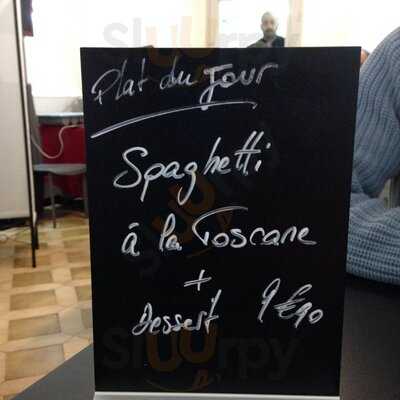 Plat du jour
Spaghetti
à la Toscane
+
Dessert 9€90
sluurpy
sluurpy